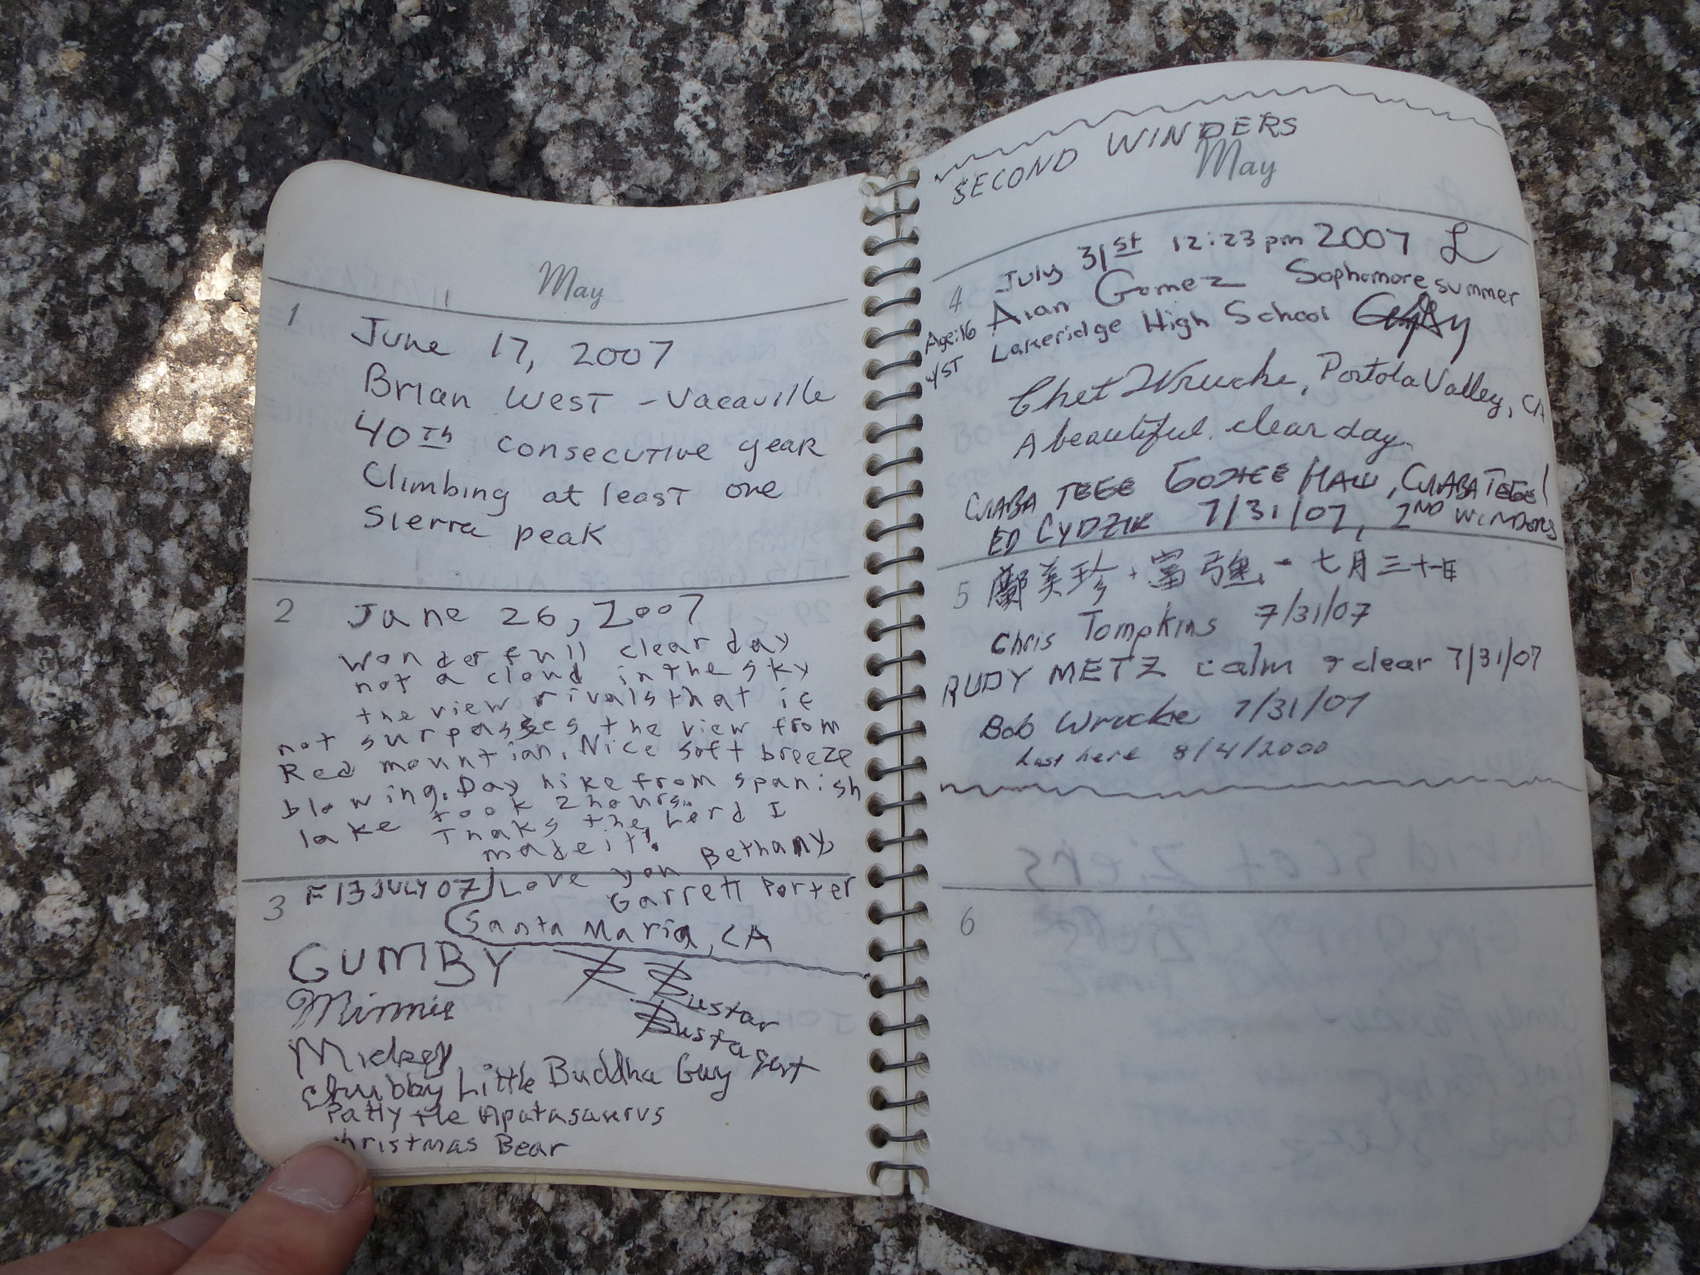 May
1
June 17, 2007
Brian West - Vacaville
40Th consecutive year
Climbing at least one
Sierra peak
2
June 26, 2007
wonderfull clear day
not a cloud in the sky
the view rivals that if
not surpasses the view from
Red mountian. Nice soft breeze
blowing. Day hike from spanish
lake took 2 hours.
Thaks the Lord I
made it!
Love you Bethany
Garrett Porter
Santa Maria, CA
3
F 13 JULY 07
GUMBY
Minnie
Mickey
Bustar
Bustagent
Chubby Little Buddha Guy
Patty the Apatasaurus
Christmas Bear
SECOND WINDERS
May
4
July 31st 12:23 pm 2007
Alan Gomez Sophomore summer
Age: 16 Lakeridge High School
1/ST
Chet Wrucke, Portola Valley, CA
A beautiful clear day.
СЛАВА ТЕБЕ БОЖЕ НАШ, СЛАВА ТЕБЕ!
ED CYDZIK 7/31/07, 2ND WINDERS
5
鄺美珍 · 富強 - 七月三十一日
Chris Tompkins 7/31/07
RUDY METZ calm & clear 7/31/07
Bob Wrucke 7/31/07
Last here 8/4/2000
6